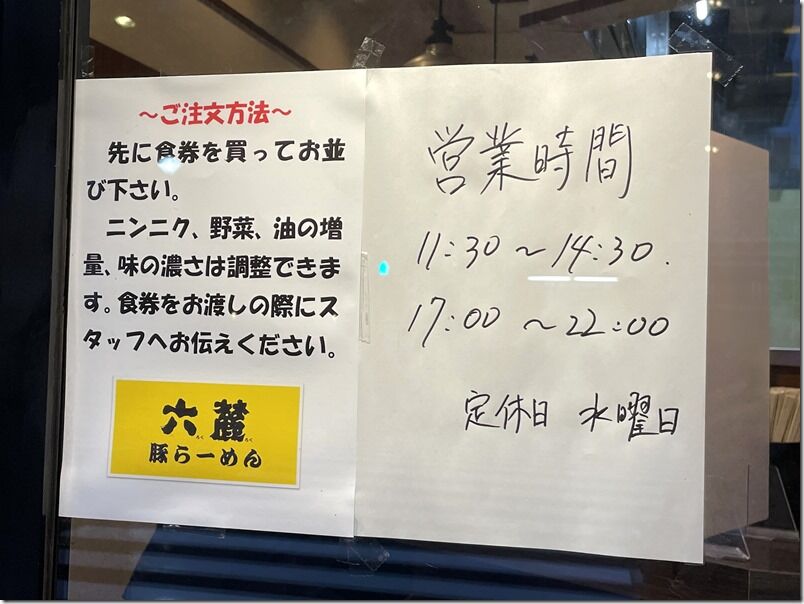 ～ご注文方法～
先に食券を買ってお並
び下さい。
ニンニク、野菜、油の増
量、味の濃さは調整できま
す。食券をお渡しの際にス
タッフへお伝えください。
六麓
ろく ろく
豚らーめん
営業時間
11:30 ～ 14:30.
17:00 ～ 22:00
定休日 水曜日